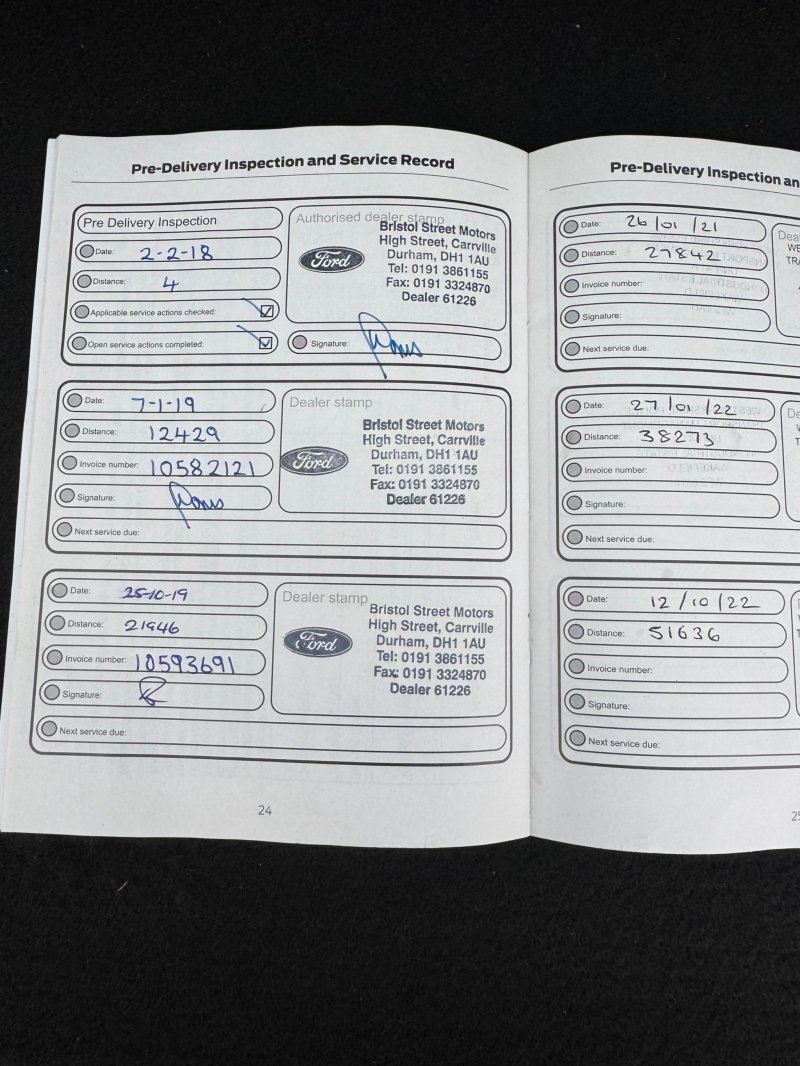 Pre-Delivery Inspection and Service Record
Pre Delivery Inspection
Date: 2-2-18
Distance: 4
Applicable service actions checked:
Open service actions completed:
Authorised dealer stamp
Ford
Bristol Street Motors
High Street, Carrville
Durham, DH1 1AU
Tel: 0191 3861155
Fax: 0191 3324870
Dealer 61226
Signature:
Date: 7-1-19
Distance: 12429
Invoice number: 10582121
Signature:
Next service due:
Dealer stamp
Ford
Bristol Street Motors
High Street, Carrville
Durham, DH1 1AU
Tel: 0191 3861155
Fax: 0191 3324870
Dealer 61226
Date: 25-10-19
Distance: 21946
Invoice number: 10593691
Signature:
Next service due:
Dealer stamp
Ford
Bristol Street Motors
High Street, Carrville
Durham, DH1 1AU
Tel: 0191 3861155
Fax: 0191 3324870
Dealer 61226
24
Pre-Delivery Inspection an
Date: 26/01/21
Distance: 27842
Invoice number:
Signature:
Next service due:
Dea
WE
TRA
Date: 27/01/22
Distance: 38273
Invoice number:
Signature:
Next service due:
De
Date: 12/10/22
Distance: 51636
Invoice number:
Signature:
Next service due:
25